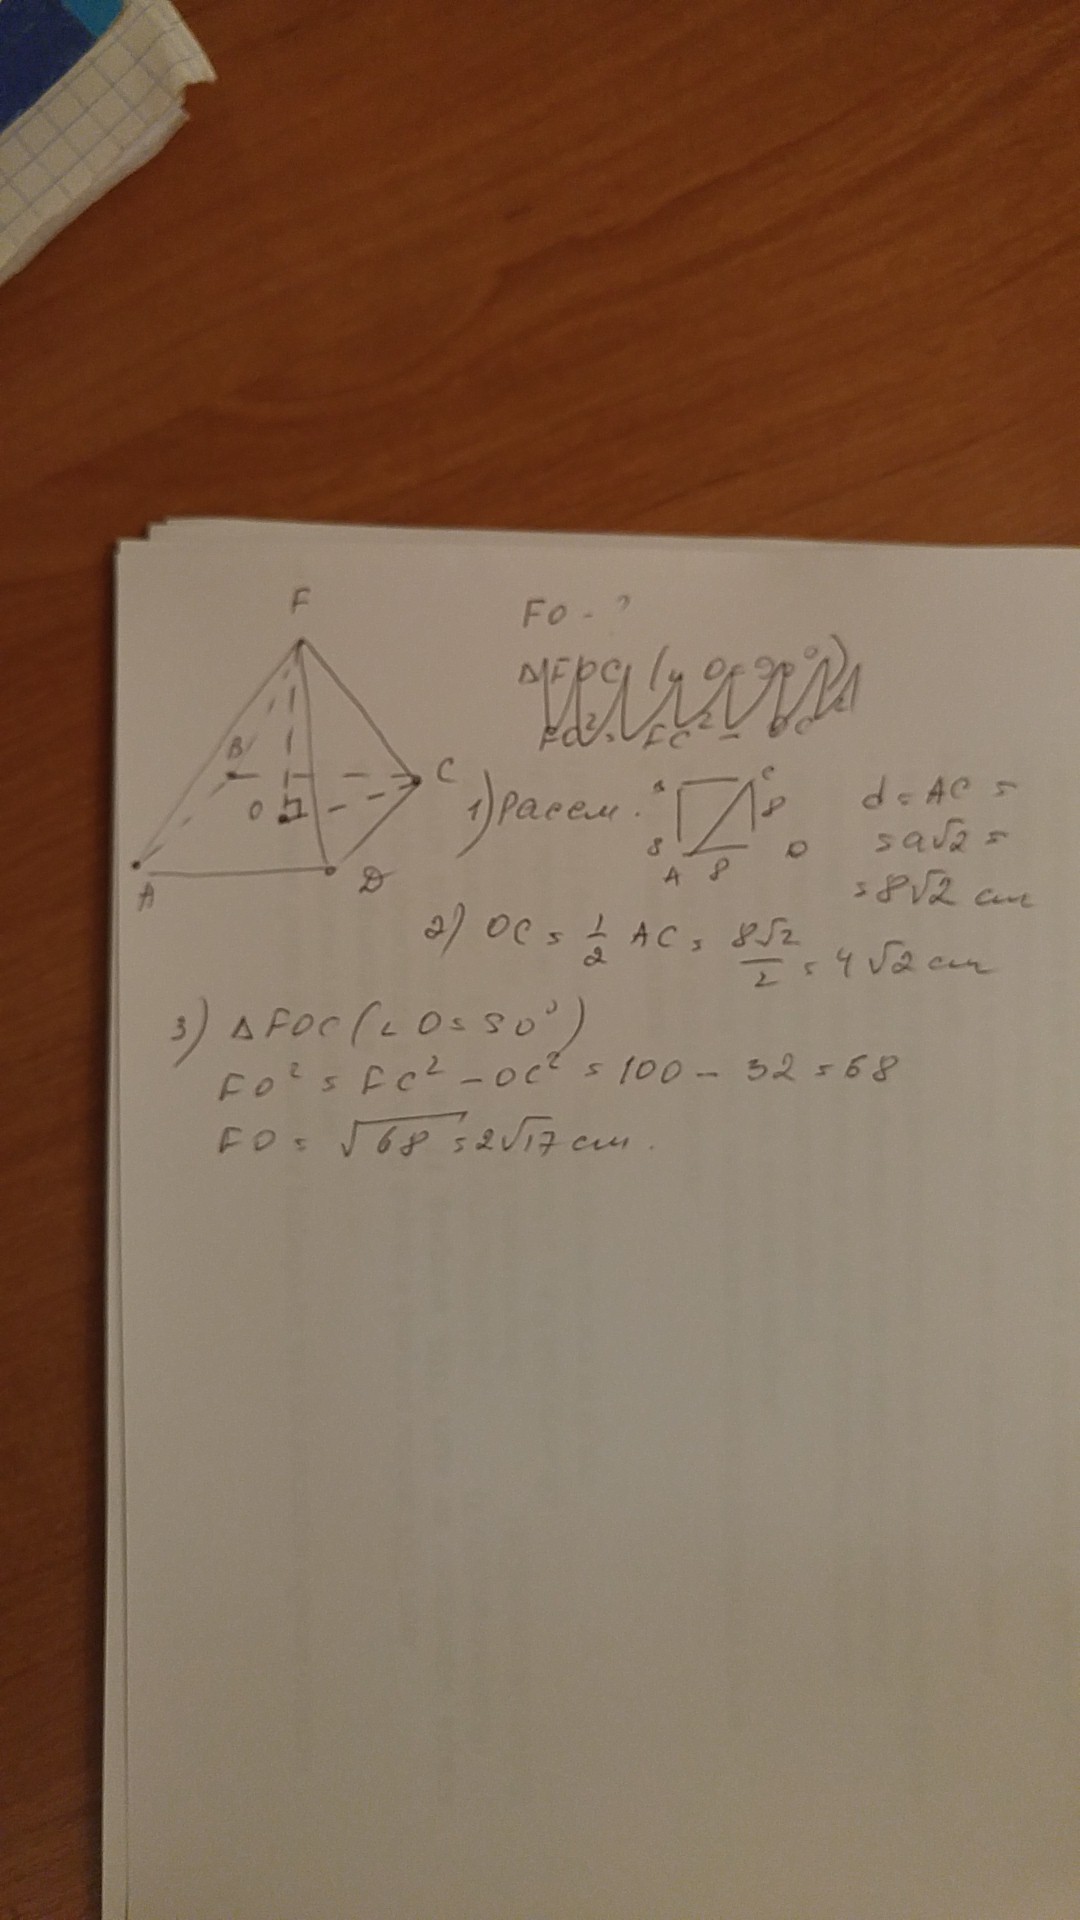 F
FO - ?
B
O
C
A
D
1) Рассм.
C
8
8
A
8
D
d = AC =
= a√2 =
= 8√2 см
2) OC = 1/2 AC = 8√2/2 = 4√2 см
3) △FOC (∠O = 90°)
FO² = FC² - OC² = 100 - 32 = 68
FO = √68 = 2√17 см.